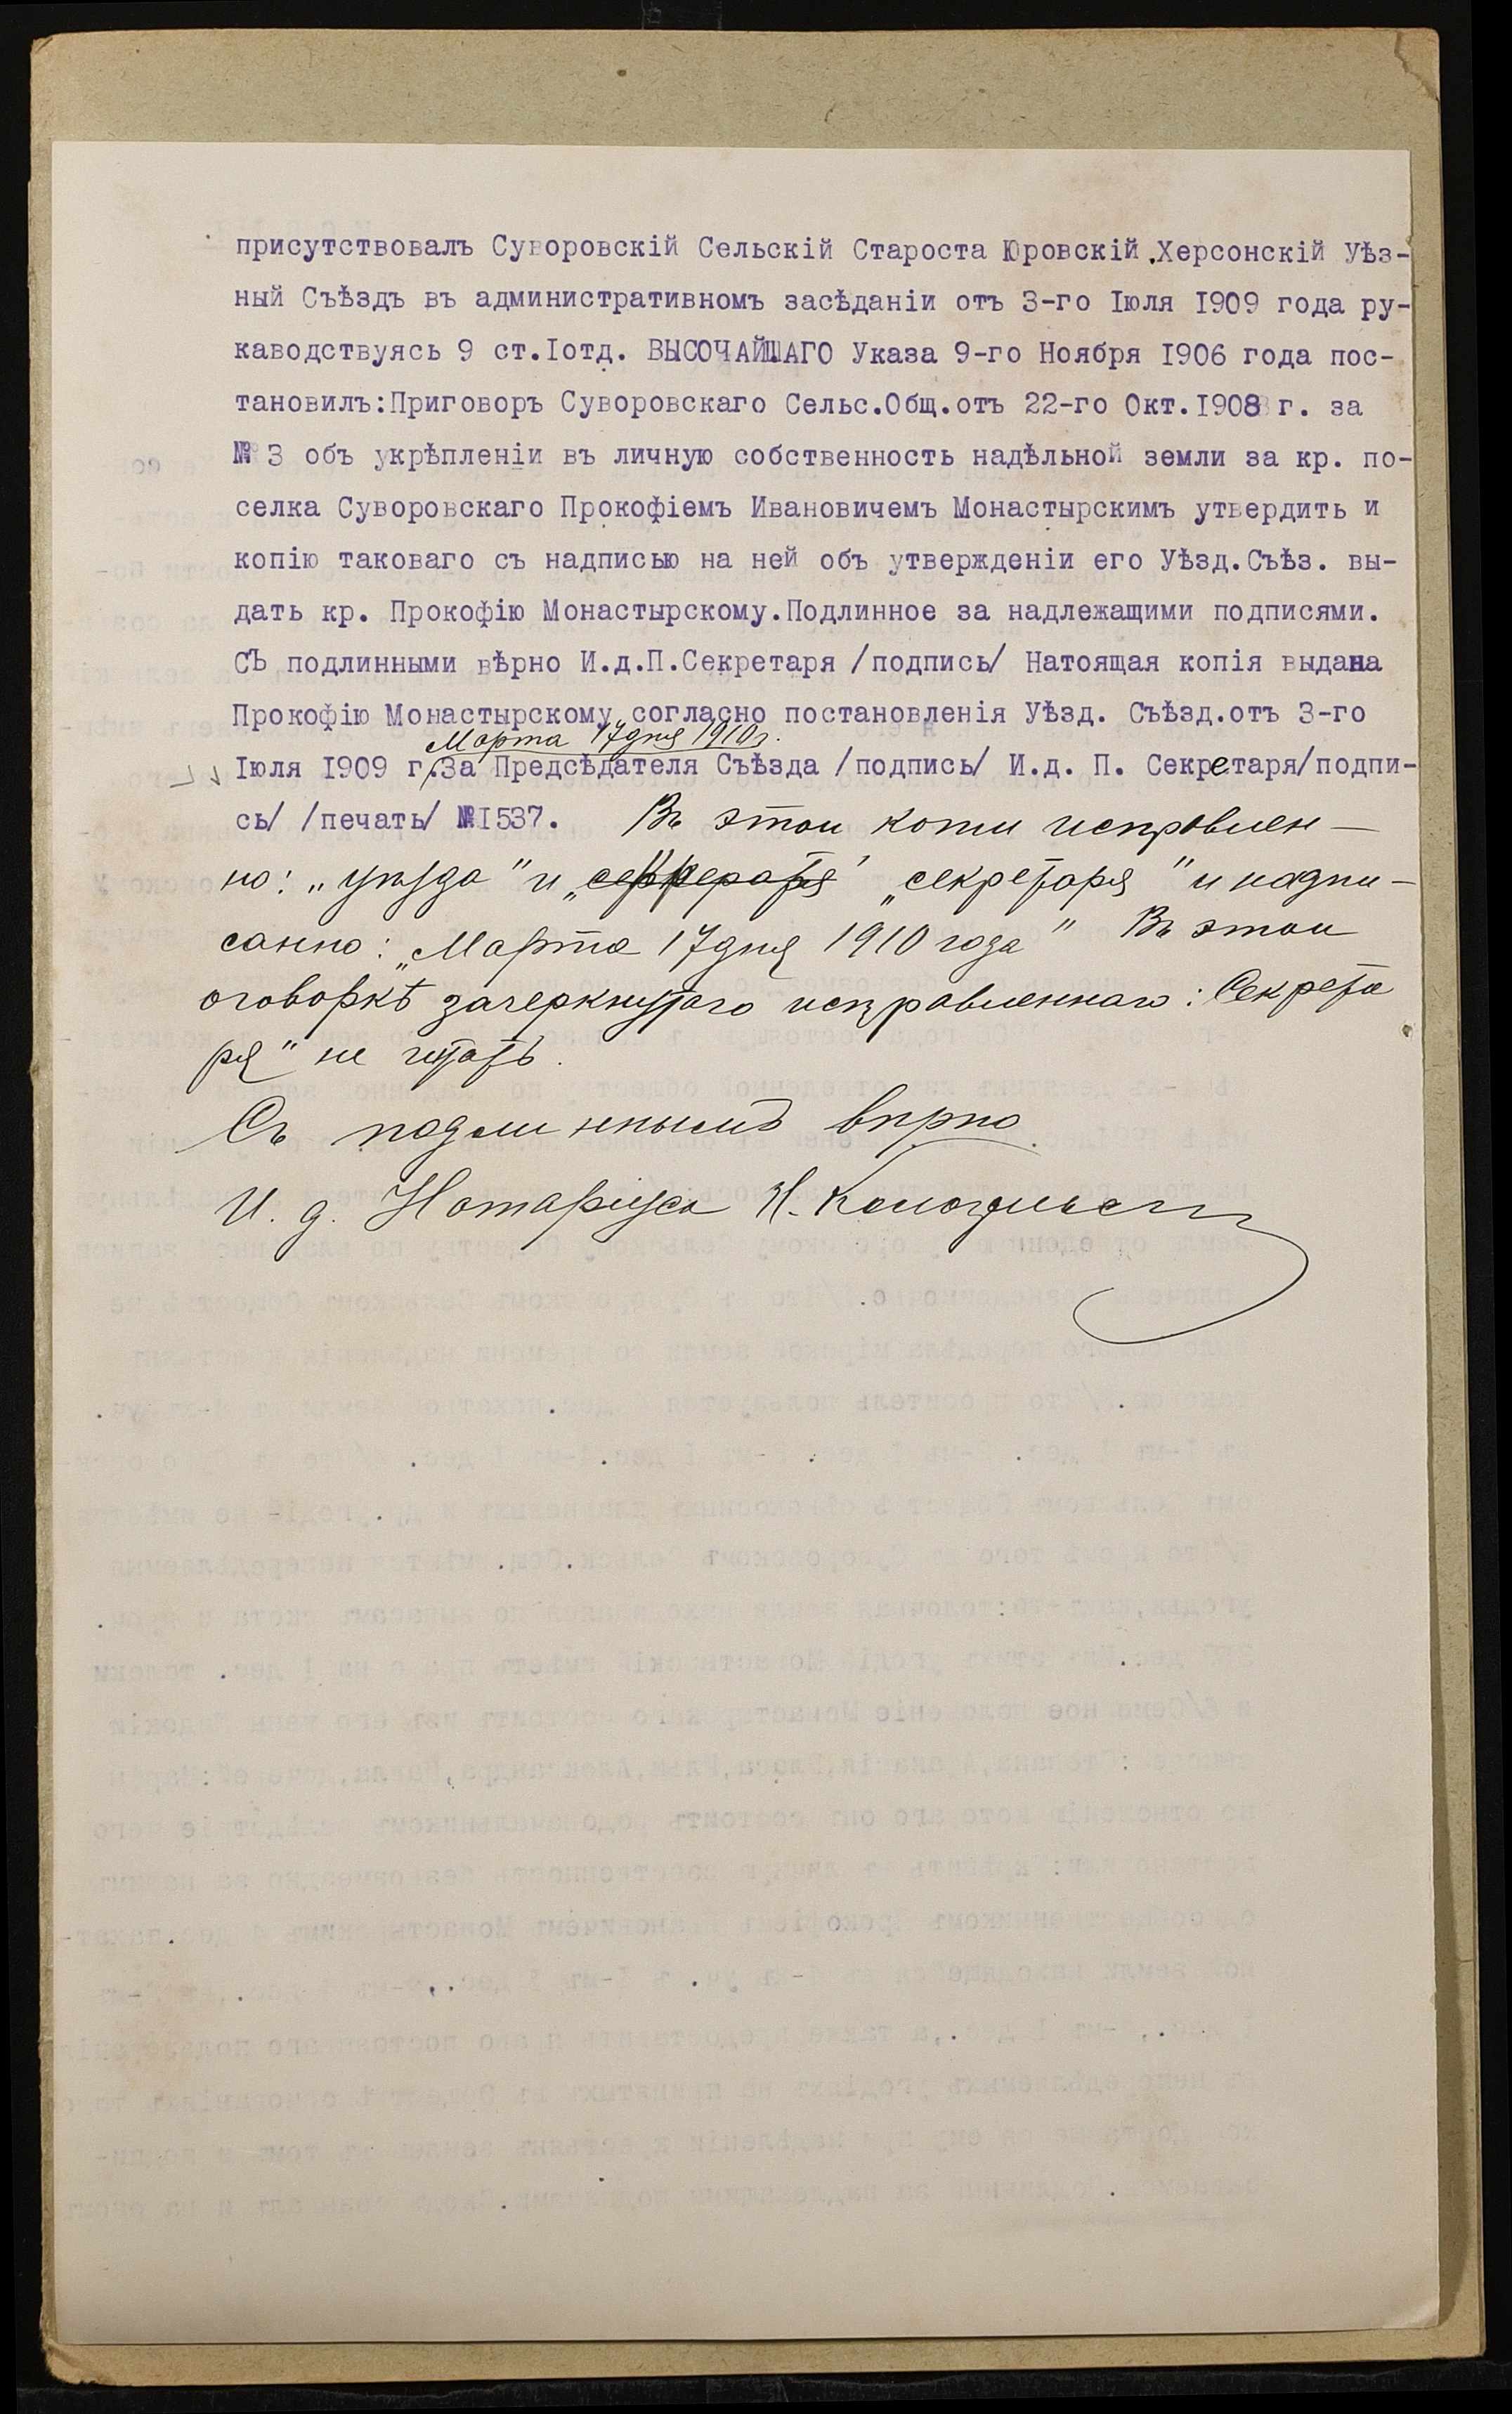 присутствовалъ Суворовскій Сельскій Староста Юровскій.Херсонскій Уѣз-
ный Съѣздъ въ административномъ засѣданіи отъ 3-го Іюля I909 года ру-
каводствуясь 9 ст.Iотд. ВЫСОЧАЙШАГО Указа 9-го Ноября I906 года пос-
тановилъ:Приговоръ Суворовскаго Сельс.Общ.отъ 22-го Окт.I908 г. за
№ 3 объ укрѣпленіи въ личную собственность надѣльной земли за кр. по-
селка Суворовскаго Прокофіемъ Ивановичемъ Монастырскимъ утвердить и
копію таковаго съ надписью на ней объ утвержденіи его Уѣзд.Съѣз. вы-
дать кр. Прокофію Монастырскому.Подлинное за надлежащими подписями.
СЪ подлинными вѣрно И.д.П.Секретаря /подпись/ Натоящая копія выдана
Прокофію Монастырскому согласно постановленія Уѣзд. Съѣзд.отъ 3-го
Марта 17 дня 1910 г.
Іюля I909 г.За Предсѣдателя Съѣзда /подпись/ И.д. П. Секретаря/подпи-
сь/ /печать/ №I537. Въ этой копіи исправлен-
но: „ уѣзда " и „ „секретаря " и надпи-
санно: „Марта 17 дня 1910 года " Въ этой
оговоркѣ зачеркнутаго исправленнаго: Секрета
ря" не читать.
Съ подлиннымъ вѣрно
И. д. Нотаріуса Н.